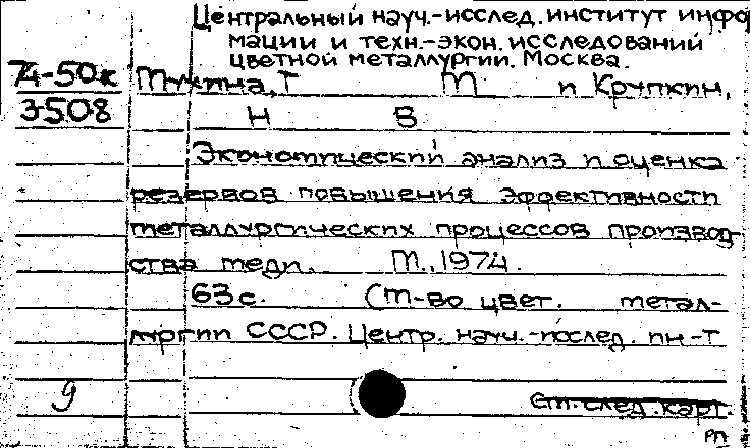 Центральный науч.-исслед. институт инфор
мации и техн.-экон. исследований
цветной металлургии. Москва.
74-50к Т М и Крупкин,
3508 Н В
Экономический анализ и оценка
резервов повышения эффективности
металлургических процессов производ-
ства меди. М., 1974.
63с. (М-во цвет. метал-
лургии СССР. Центр. науч.-исслед. ин-т
9 См. след. карт.
рп